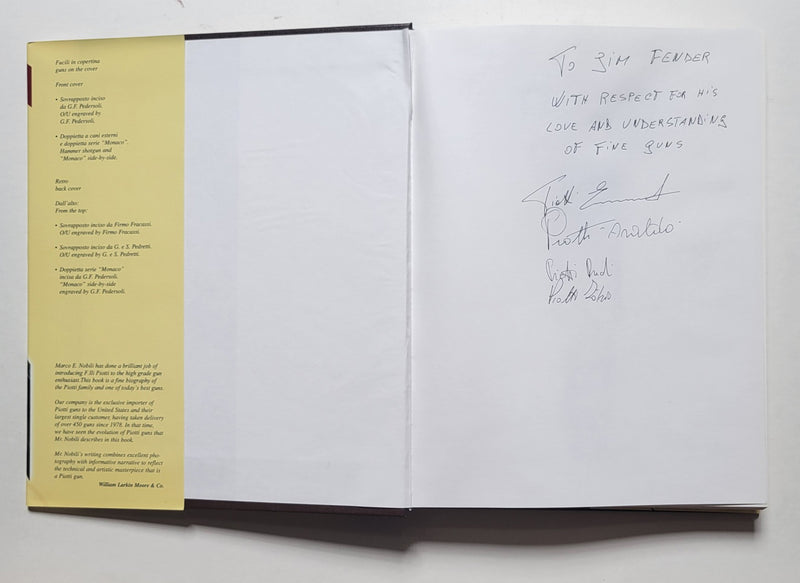 Fucili in copertina
guns on the cover
Front cover
• Sovrapposto inciso
da G.F. Pedersoli.
O/U engraved by
G.F. Pedersoli.
• Doppietta a cani esterni
e doppietta serie "Monaco".
Hammer shotgun and
"Monaco" side-by-side.
Retro
back cover
Dall'alto:
From the top:
• Sovrapposto inciso da Firmo Fracassi.
O/U engraved by Firmo Fracassi.
• Sovrapposto inciso da G. e S. Pedretti.
O/U engraved by G. e S. Pedretti.
• Doppietta serie "Monaco"
incisa da G.F. Pedersoli.
"Monaco" side-by-side
engraved by G.F. Pedersoli.
Marco E. Nobili has done a brilliant job of
introducing F.lli Piotti to the high grade gun
enthusiast. This book is a fine biography of
the Piotti family and one of today's best guns.
Our company is the exclusive importer of
Piotti guns to the United States and their
largest single customer, having taken delivery
of over 450 guns since 1978. In that time,
we have seen the evolution of Piotti guns that
Mr. Nobili describes in this book.
Mr. Nobili's writing combines excellent pho-
tography with informative narrative to reflect
the technical and artistic masterpiece that is
a Piotti gun.
William Larkin Moore & Co.
TO JIM FENDER
WITH RESPECT FOR HIS
LOVE AND UNDERSTANDING
OF FINE GUNS
Piotti
Piotti Araldo
Piotti Rudi
Piotti Fabio